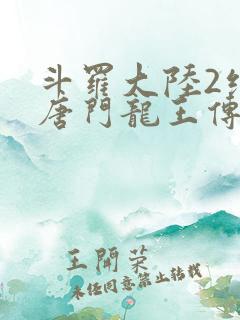 斗羅大陸2
唐門龍王傳
王開荣
未任同意禁止转载